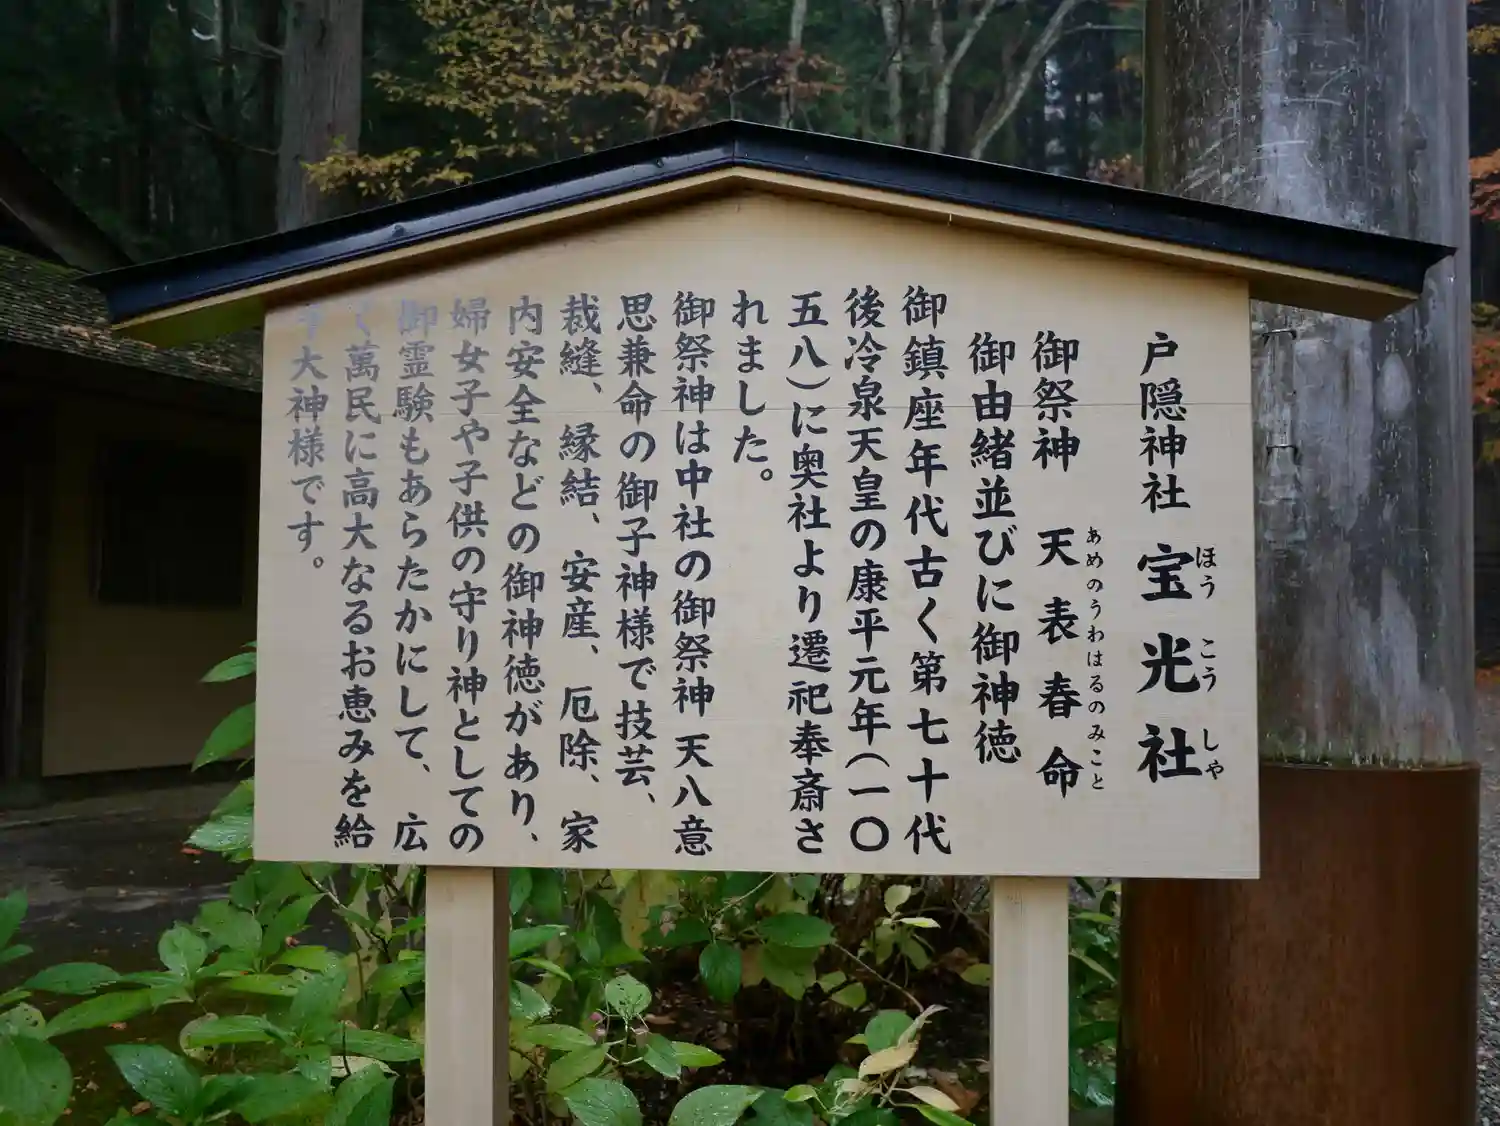 戸隠神社 宝光社
ほうこうしや
御祭神 天表春命
あめのうわはるのみこと
御由緒並びに御神徳
御鎮座年代古く第七十代
後冷泉天皇の康平元年(一〇
五八)に奥社より遷祀奉斎さ
れました。
御祭神は中社の御祭神 天八意
思兼命の御子神様で技芸、
裁縫、縁結、安産、厄除、家
内安全などの御神徳があり、
婦女子や子供の守り神としての
御霊験もあらたかにして、広
く萬民に高大なるお恵みを給
う大神様です。